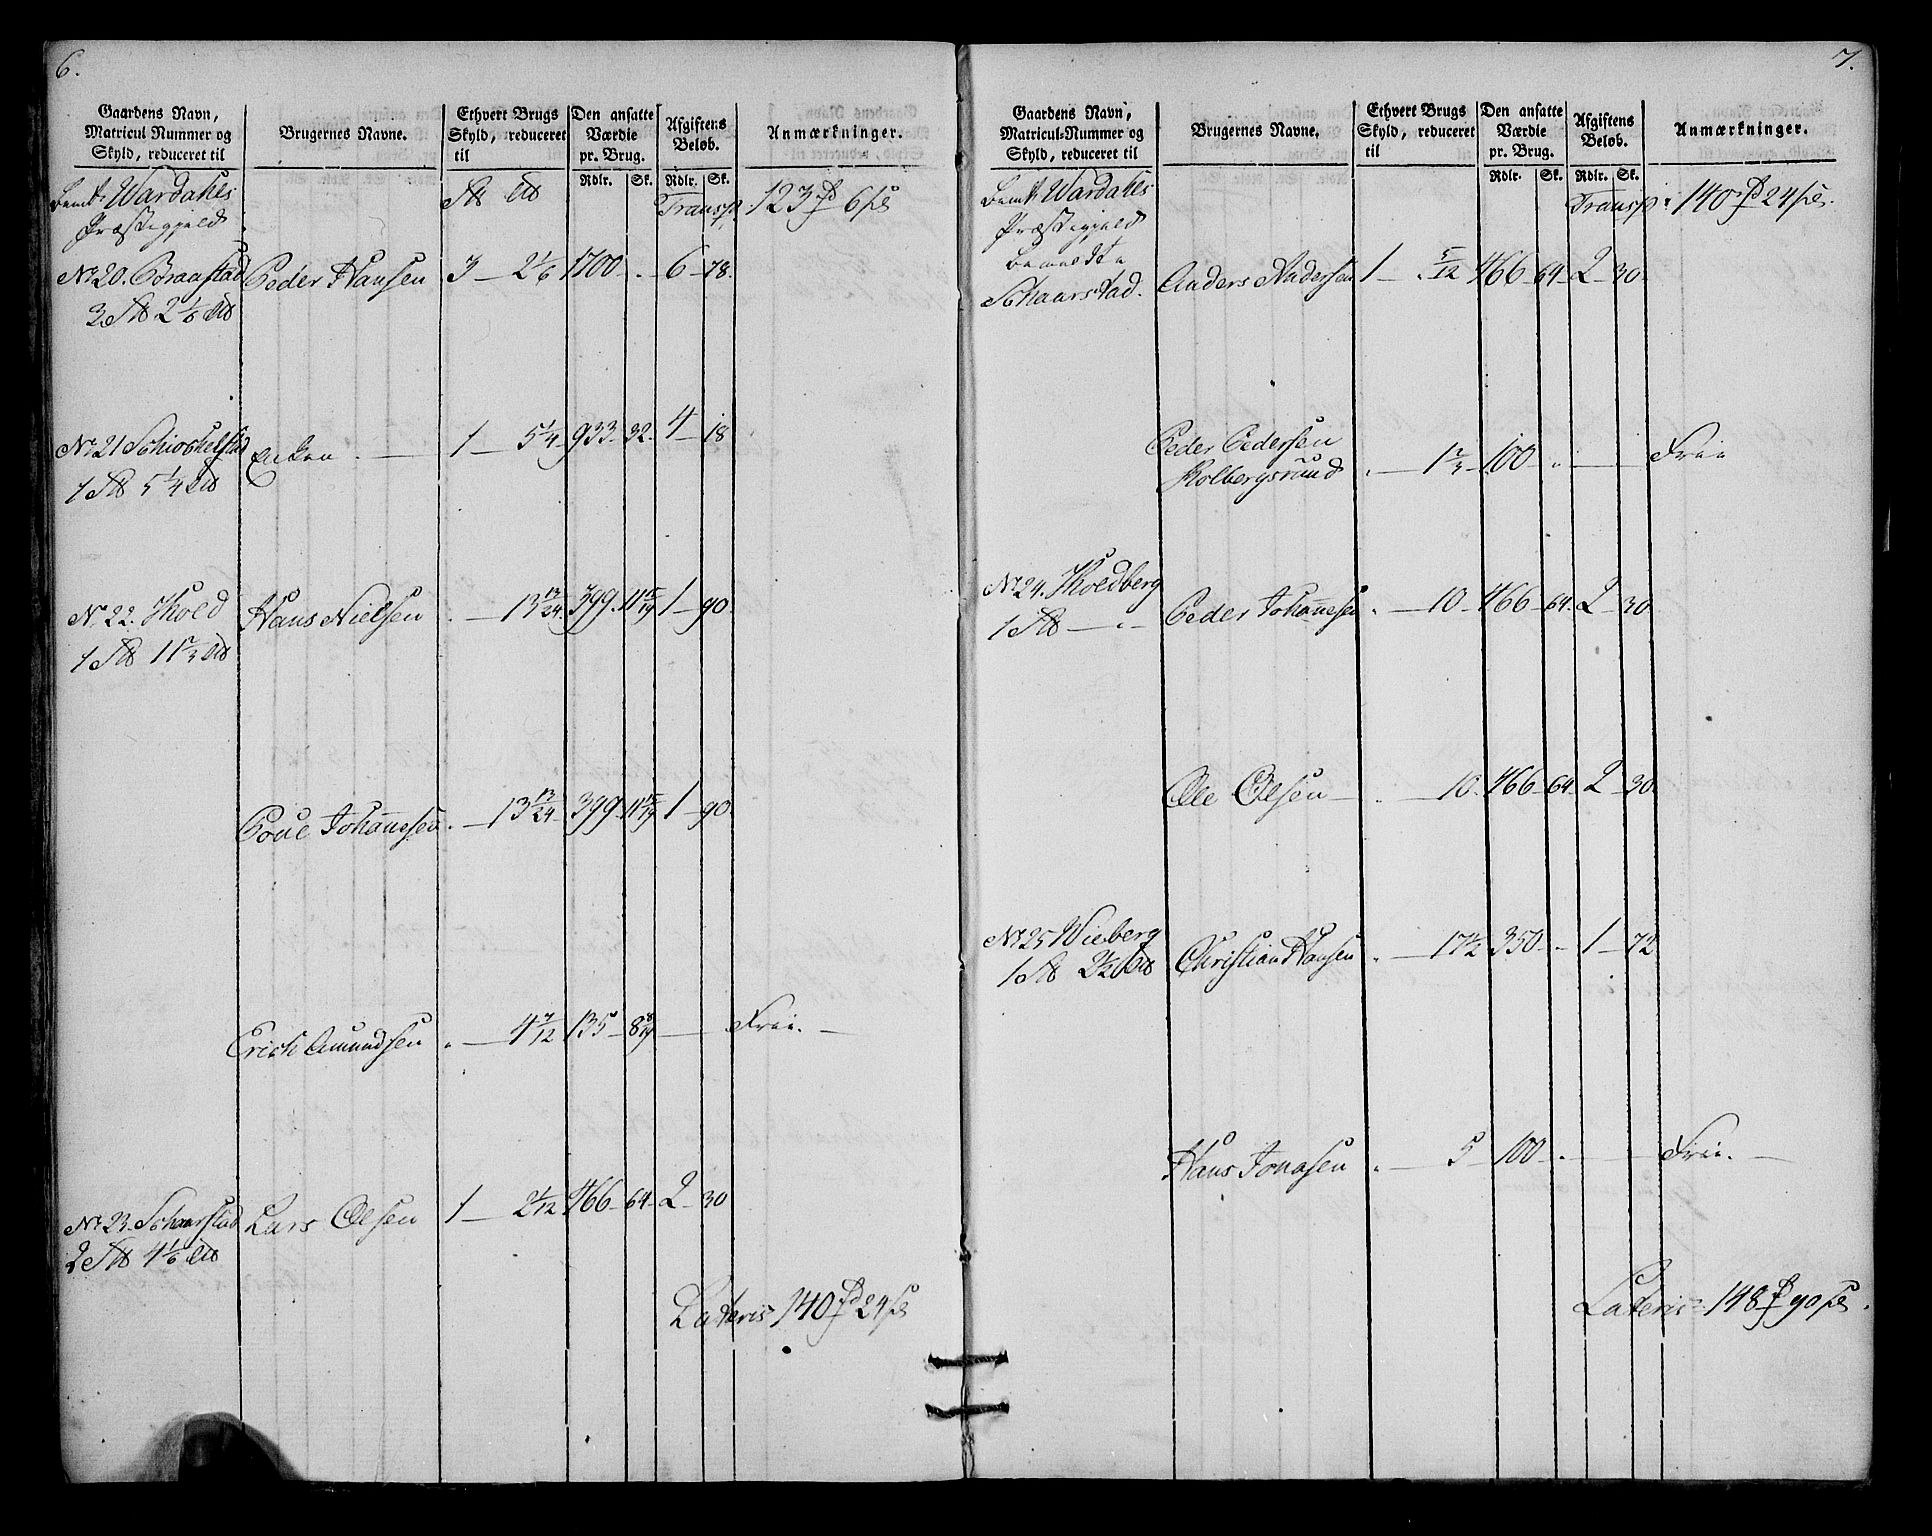 6.
Gaardens Navn,
Matricul Nummer og
Skyld, reduceret til
Brugernes Navne.
Ethvert Brugs
Skyld, reduceret
til
Den ansatte
Værdie
pr. Brug.
Rdlr. Sk.
Afgiftens
Beløb.
Rdlr. Sk.
Anmærkninger.
Wardahls
Præstegjeld
Transp. 123 6
No 20. Braastad Peder Hansen 3 — 2 1/6 1700 - - 6 - 78.
2 1/6
No 21 Schiochelstad Enken 1 — 5 1/4 933 - 32 - 4 - 18
1 5 1/4
No 22. Skold Hans Nielsen - — 13 13/24 399 - 11 15/19 1 - 90.
1 11 2/3
Poul Johannesen - — 13 13/24 399 - 11 15/19 1 - 90.
Erich Amundsen - — 4 7/12 135 - 8 8/19 — Frie. —
No 23. Schaarstad Lars Olsen 1 — 2 1/12 466 - 64 - 2 - 30
2 4 1/6
Lateris 140 24
7.
Gaardens Navn,
Matricul-Nummer og
Skyld, reduceret til
Brugernes Navne.
Ethvert Brugs
Skyld, reduceret
til
Den ansatte
Værdie
pr. Brug.
Rdlr. Sk.
Afgiftens
Beløb.
Rdlr. Sk.
Anmærkninger.
Wardahls
Præstegjeld
Transp: 140 24
Bemeldte
Schaarstad. Anders Andersen 1 — - 5/12 466 - 64 - 2 - 30.
Peder Pedersen
Kolbergsruud - — 1 2/3 - 100 - - — Frie
No 24. Skoldberg Peder Johannesen - — 10 - 466 - 64 - 2 - 30
1 — -
Ole Olsen - — 10 - 466 - 64 - 2 - 30.
No 25 Wieberg Christian Hansen - — 17 1/2 350 - - 1 - 72
1 2 1/2
Hans Jonasen - — 5 - 100 - - — Frie. —
Lateris 148 90